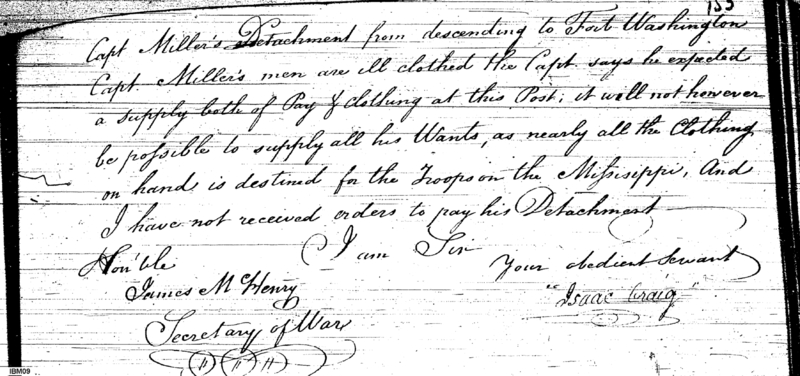 133
Capt Miller's Detachment from descending to Fort Washington
Capt. Miller's men are ill clothed the Capt. says he expected
a supply both of Pay & clothing at this Post; it will not however
be possible to supply all his Wants, as nearly all the Clothing
on hand is destined for the Troops on the Missisippi, And
I have not received orders to pay his Detachment
I am Sir
Hon'ble
Your obedient Servant
James McHenry
"Isaac Craig"
Secretary of War
IBM09